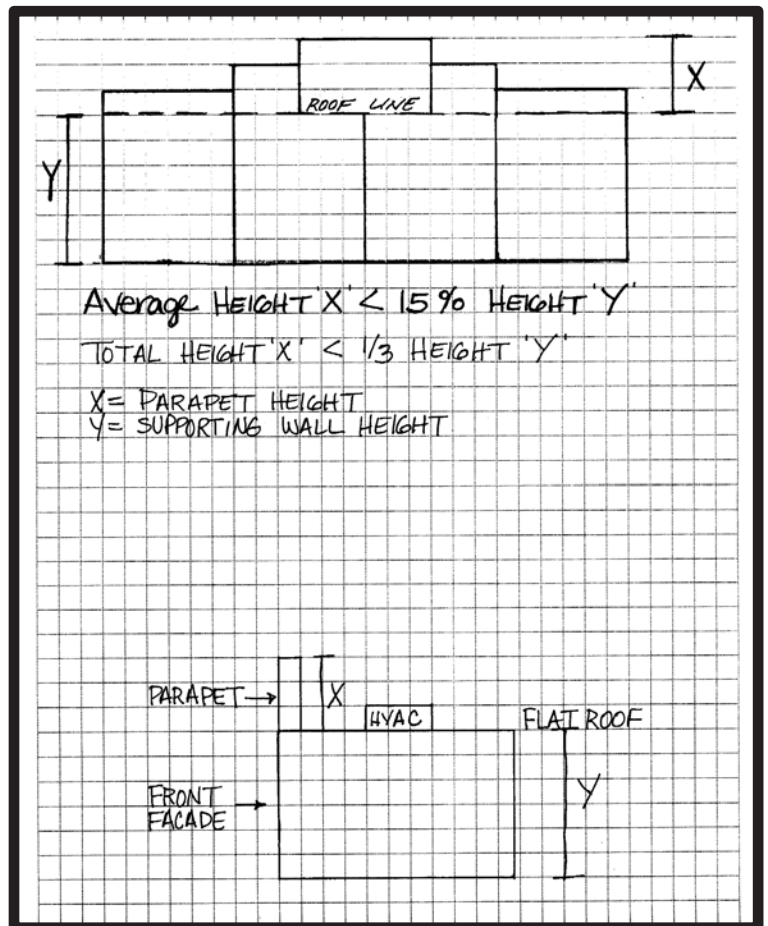 X
ROOF LINE
Y
Average HEIGHT 'X' < 15% HEIGHT 'Y'
TOTAL HEIGHT 'X' < 1/3 HEIGHT 'Y'
X= PARAPET HEIGHT
Y= SUPPORTING WALL HEIGHT
PARAPET→ X
HVAC FLAT ROOF
FRONT → Y
FACADE